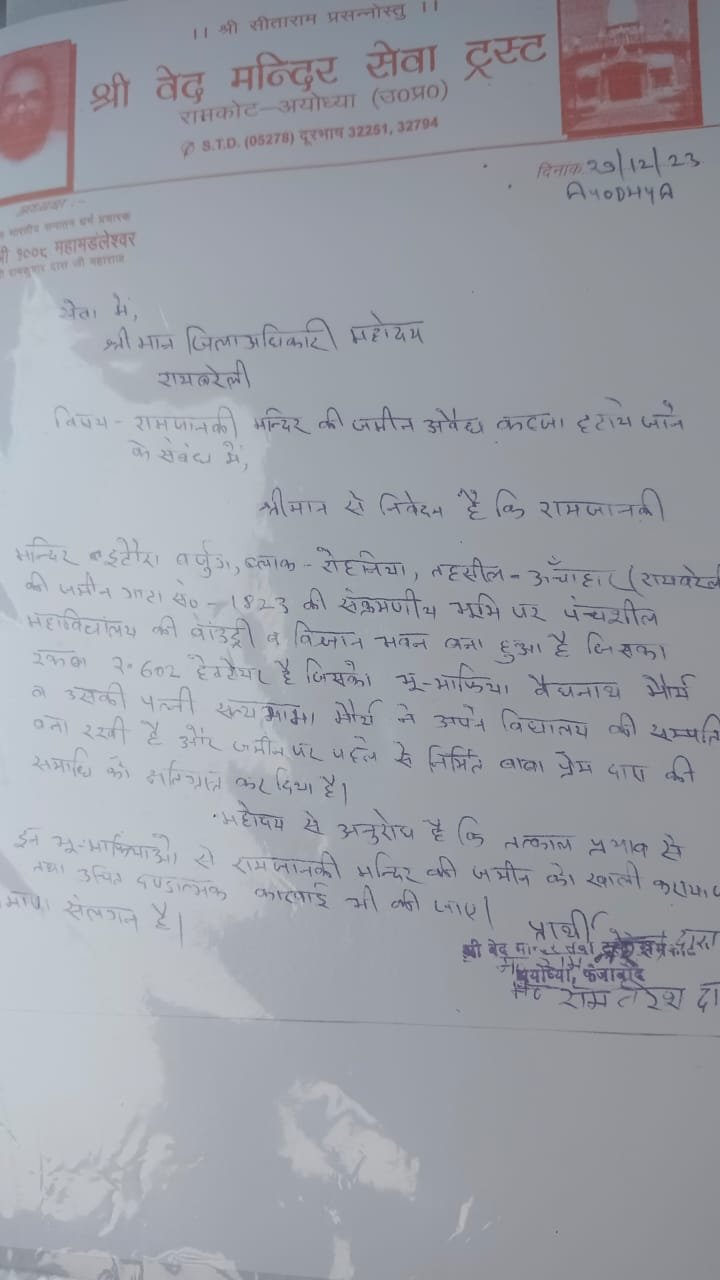 ।। श्री सीताराम प्रसन्नोस्तु ।।
श्री वेद मन्दिर सेवा ट्रस्ट
रामकोट–अयोध्या (उ०प्र०)
✆ S.T.D. (05278) दूरभाष 32251, 32794
दिनांक 29/12/23
AYODHYA
अध्यक्ष :-
भारतीय सनातन धर्म प्रचारक
श्री १००८ महामडंलेश्वर
रामकुमार दास जी महाराज
सेवा में,
श्रीमान जिलाअधिकारी महोदय
रायबरेली
विषय - रामजानकी मन्दिर की जमीन अवैध कब्जा हटाये जाने
के संबंध में,
श्रीमान से निवेदन है कि रामजानकी
मन्दिर इटौरा बुर्जुग, ब्लाक - रोहनिया, तहसील - ऊँचाहार (रायबरेली
की जमीन गाटा सं० - 1823 की संक्रमणीय भूमि पर पंचशील
महाविद्यालय की बाउंड्री व विज्ञान भवन बना हुआ है जिसका
रकबा २.602 हेक्टेयर है जिसको भू-माफिया बैधनाथ मौर्य
व उसकी पत्नी सत्यभामा मौर्य ने अपने विद्यालय की सम्पत्ति
बना रखी है और जमीन पर पहले से निर्मित बाबा प्रेम दास की
समाधि को क्षतिग्रस्त कर दिया है।
महोदय से अनुरोध है कि तत्काल प्रभाव से
इन भू-माफियाओ से रामजानकी मन्दिर की जमीन को खाली कराया
तथा उचित दण्डात्मक कारवाई भी की जाए।
संलगन है।
प्रार्थी
श्री वेद
अयोध्या, फैजाबाद